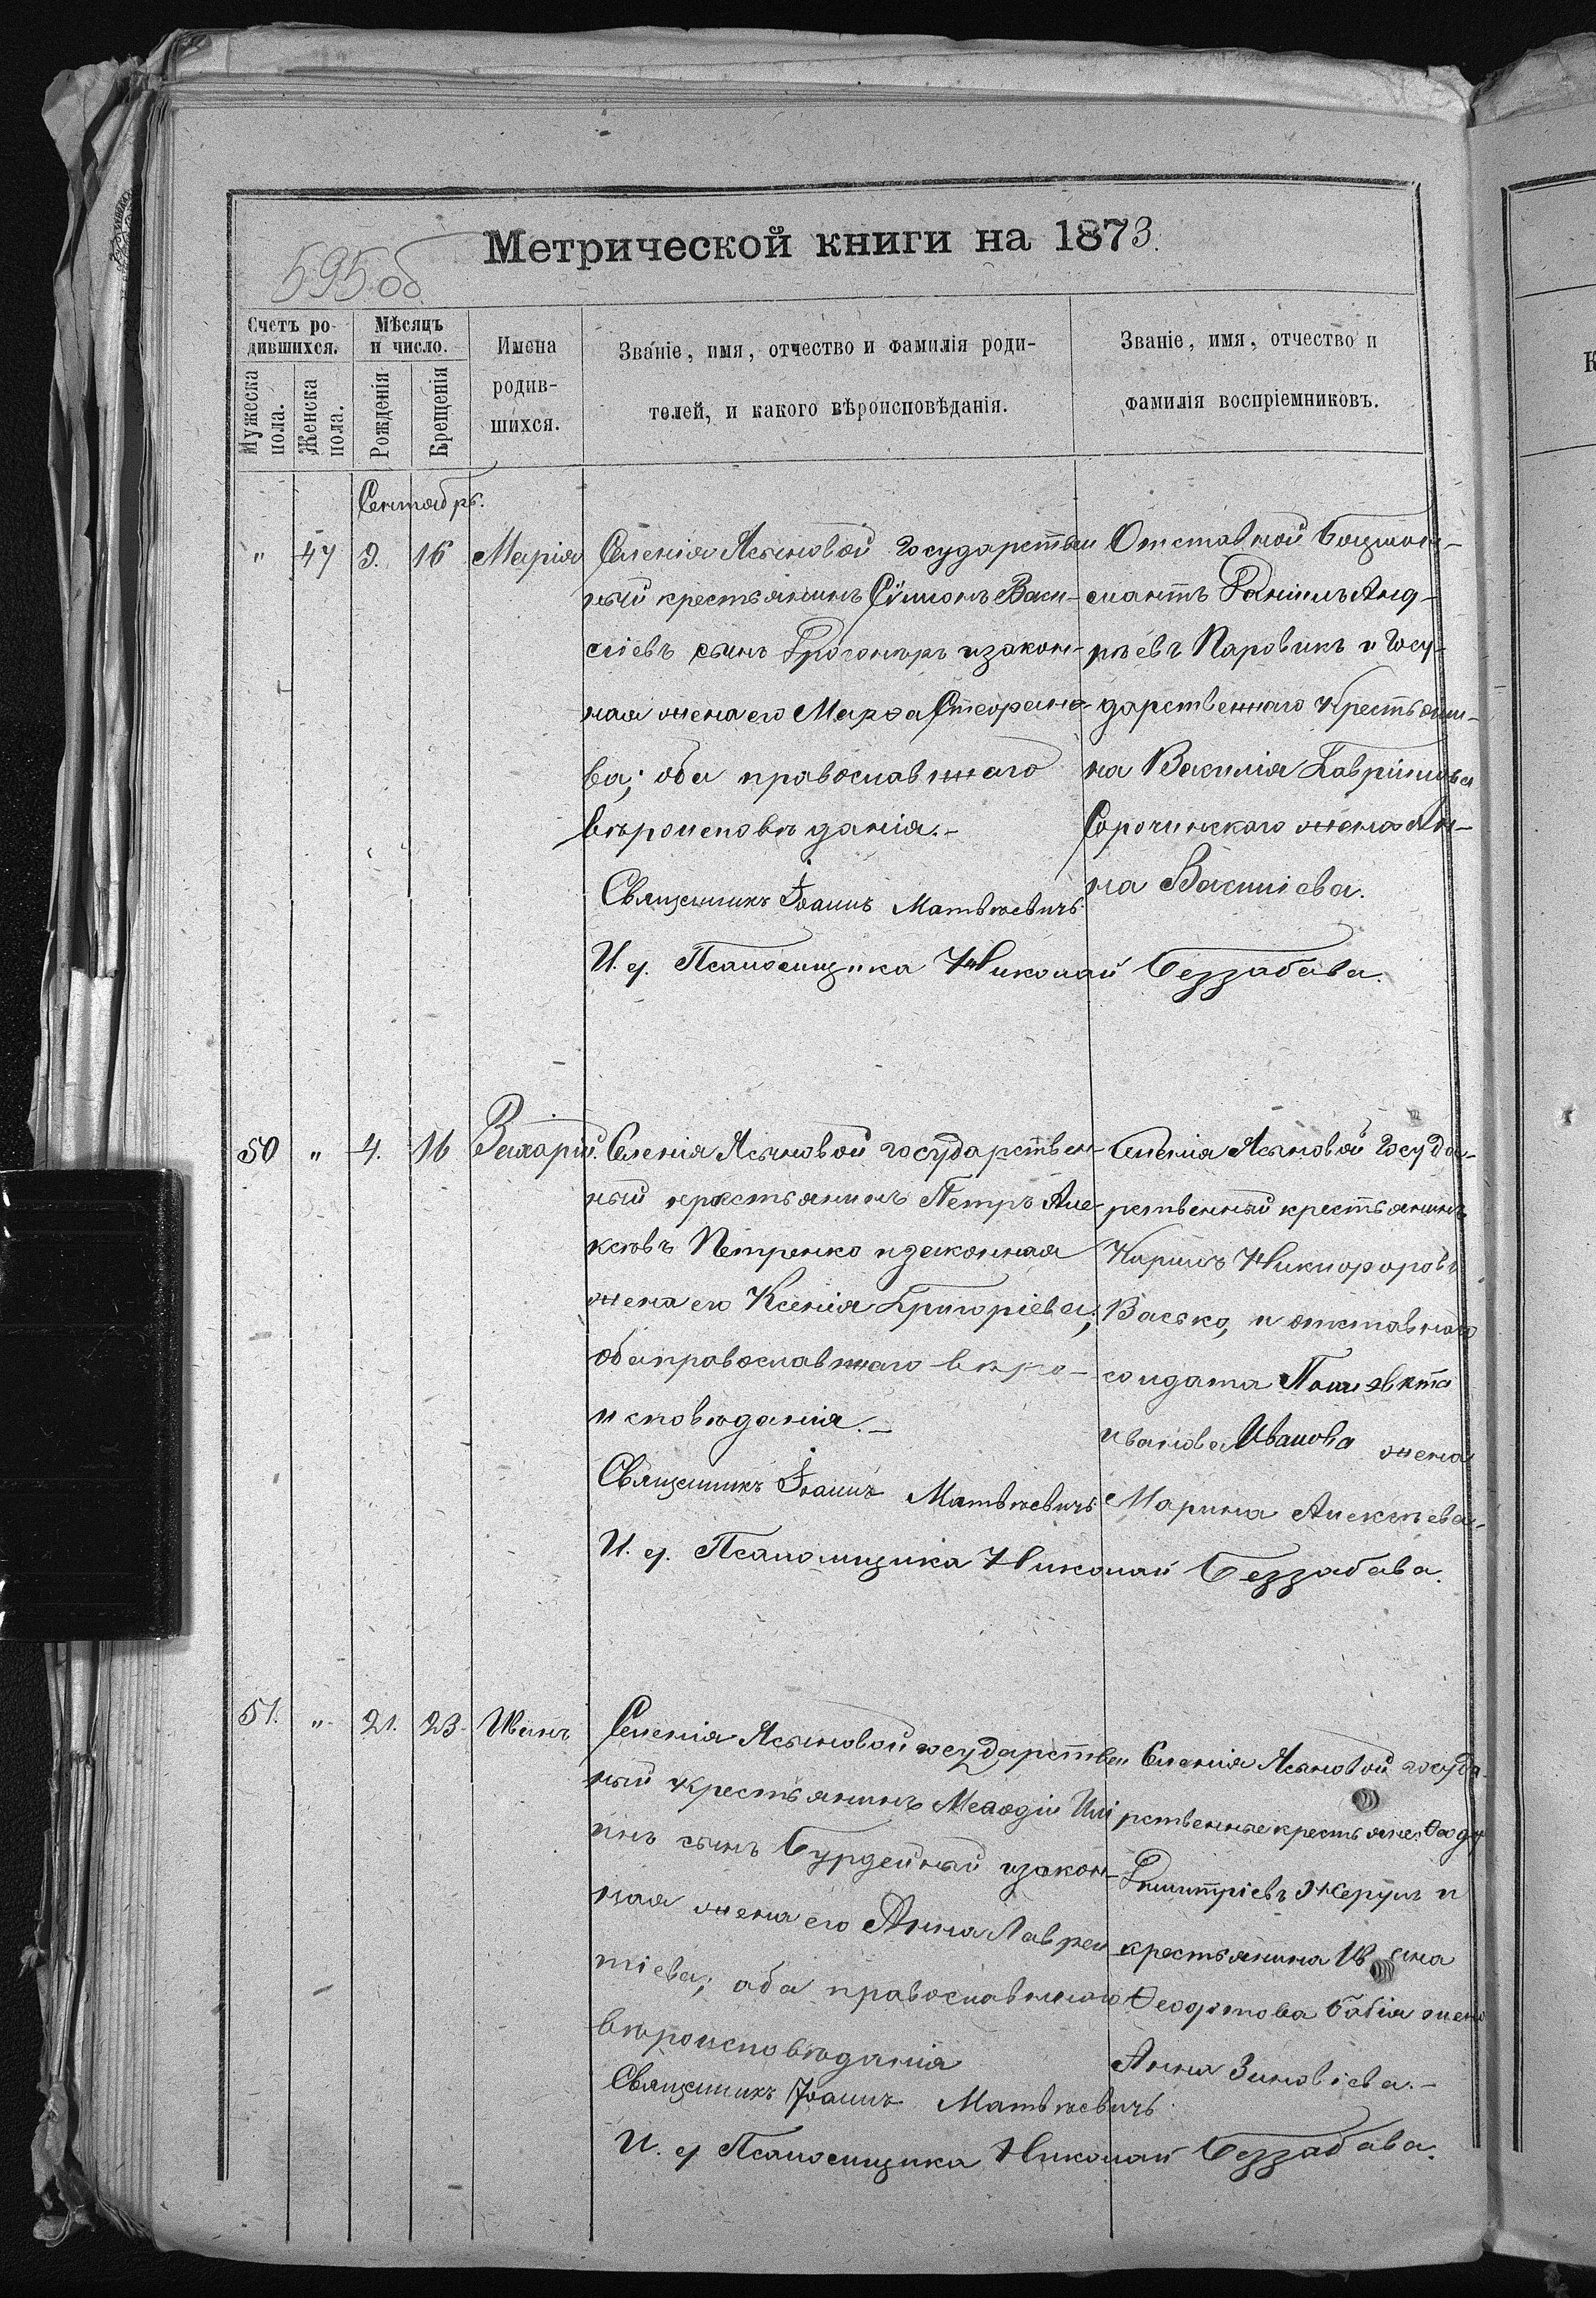 Метрической книги на 1873.
595 об
Счетъ ро-
дившихся.
Мѣсяцъ
и число.
Имена
родив-
шихся.
Званіе, имя, отчество и фамилія роди-
телей, и какого вѣроисповѣданія.
Званіе, имя, отчество и
фамилія воспріемниковъ.
Мужеска
пола.
Женска
пола.
Рожденія
Крещенія
Сентябрь.
" 47 9. 16 Марія
Селенія Ясыновой государствен
ный крестьянинъ Сѵмеонъ Васи-
ліевъ сынъ и закон-
ная жена его Марѳа
ва; оба православнаго
вѣроисповѣданія.-
Священникъ Іоаннъ Матвѣевичъ.
И. д. Псаломщика Николай Беззабава.
Отставной Боцман-
матъ Даніилъ Анд-
рѣевъ Паровикъ и Госу-
дарственнаго Крестьяни-
на Василія Гавріилова
Сорочинскаго жена Ан-
на Василіева.
50 " 4. 16 Захарій.
Селенія Ясыновой государствен-
ный крестьянинъ Петръ Але-
ксѣевъ Петренко и законная
жена его Ксенія Григоріева;
оба православнаго вѣро-
исповѣданія.-
Священникъ Іоаннъ Матвѣевичъ
И. д. Псаломщика Николай Беззабава.
Селенія Ясыновой Госуда-
рственный крестьянинъ
Никифоровъ
Васько, и отставнаго
солдата Поліевкта
Иванова жена
Марина Алексѣева.
51. " 21. 23. Иванъ
Селенія Ясыновой государствен
ный крестьянинъ Меѳодій Илі
инъ сынъ Бурдейный и закон-
ная жена его Анна Лаврен
тіева; оба православнаго
вѣроисповѣданія
Священникъ Іоаннъ Матвѣевичъ.
И. д Псаломщика Николай Беззабава.
Селенія Ясыновой госуда-
рственные крестьяне:
Дмитріевъ и
крестьянина Ивана
Ѳеодотова Бабія жена
Анна Зиновіева.-